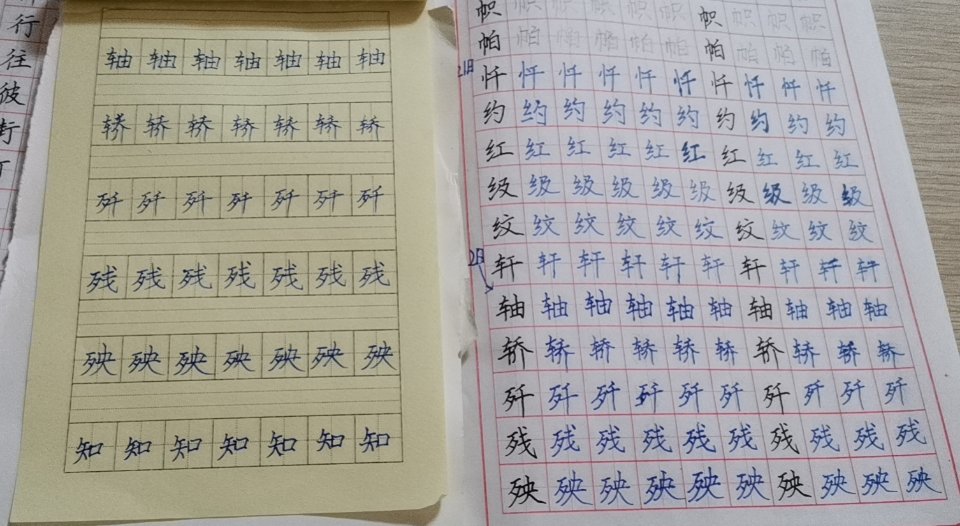 行
往
彼
轴轴轴轴轴轴轴
轿轿轿轿轿轿轿
歼歼歼歼歼歼歼
残残残残残残残
殃殃殃殃殃殃殃
知知知知知知知
帜帜帜帜帜帜帜帜帜帜
帕帕帕帕帕帕帕帕帕帕
21日
忏忏忏忏忏忏忏忏忏忏
约约约约约约约约约约
红红红红红红红红红红
级级级级级级级级级级
纹纹纹纹纹纹纹纹纹纹
轩轩轩轩轩轩轩轩轩轩
轴轴轴轴轴轴轴轴轴轴
轿轿轿轿轿轿轿轿轿轿
歼歼歼歼歼歼歼歼歼歼
残残残残残残残残残残
殃殃殃殃殃殃殃殃殃殃